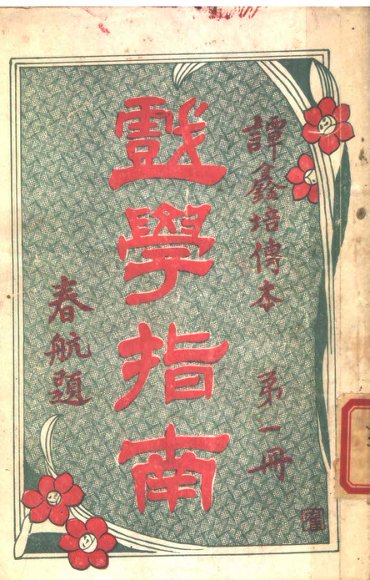 譚鑫培傳本 第一冊
戲學指南
春航題